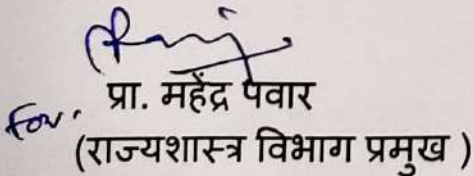 For. प्रा. महेंद्र पवार
(राज्यशास्त्र विभाग प्रमुख )